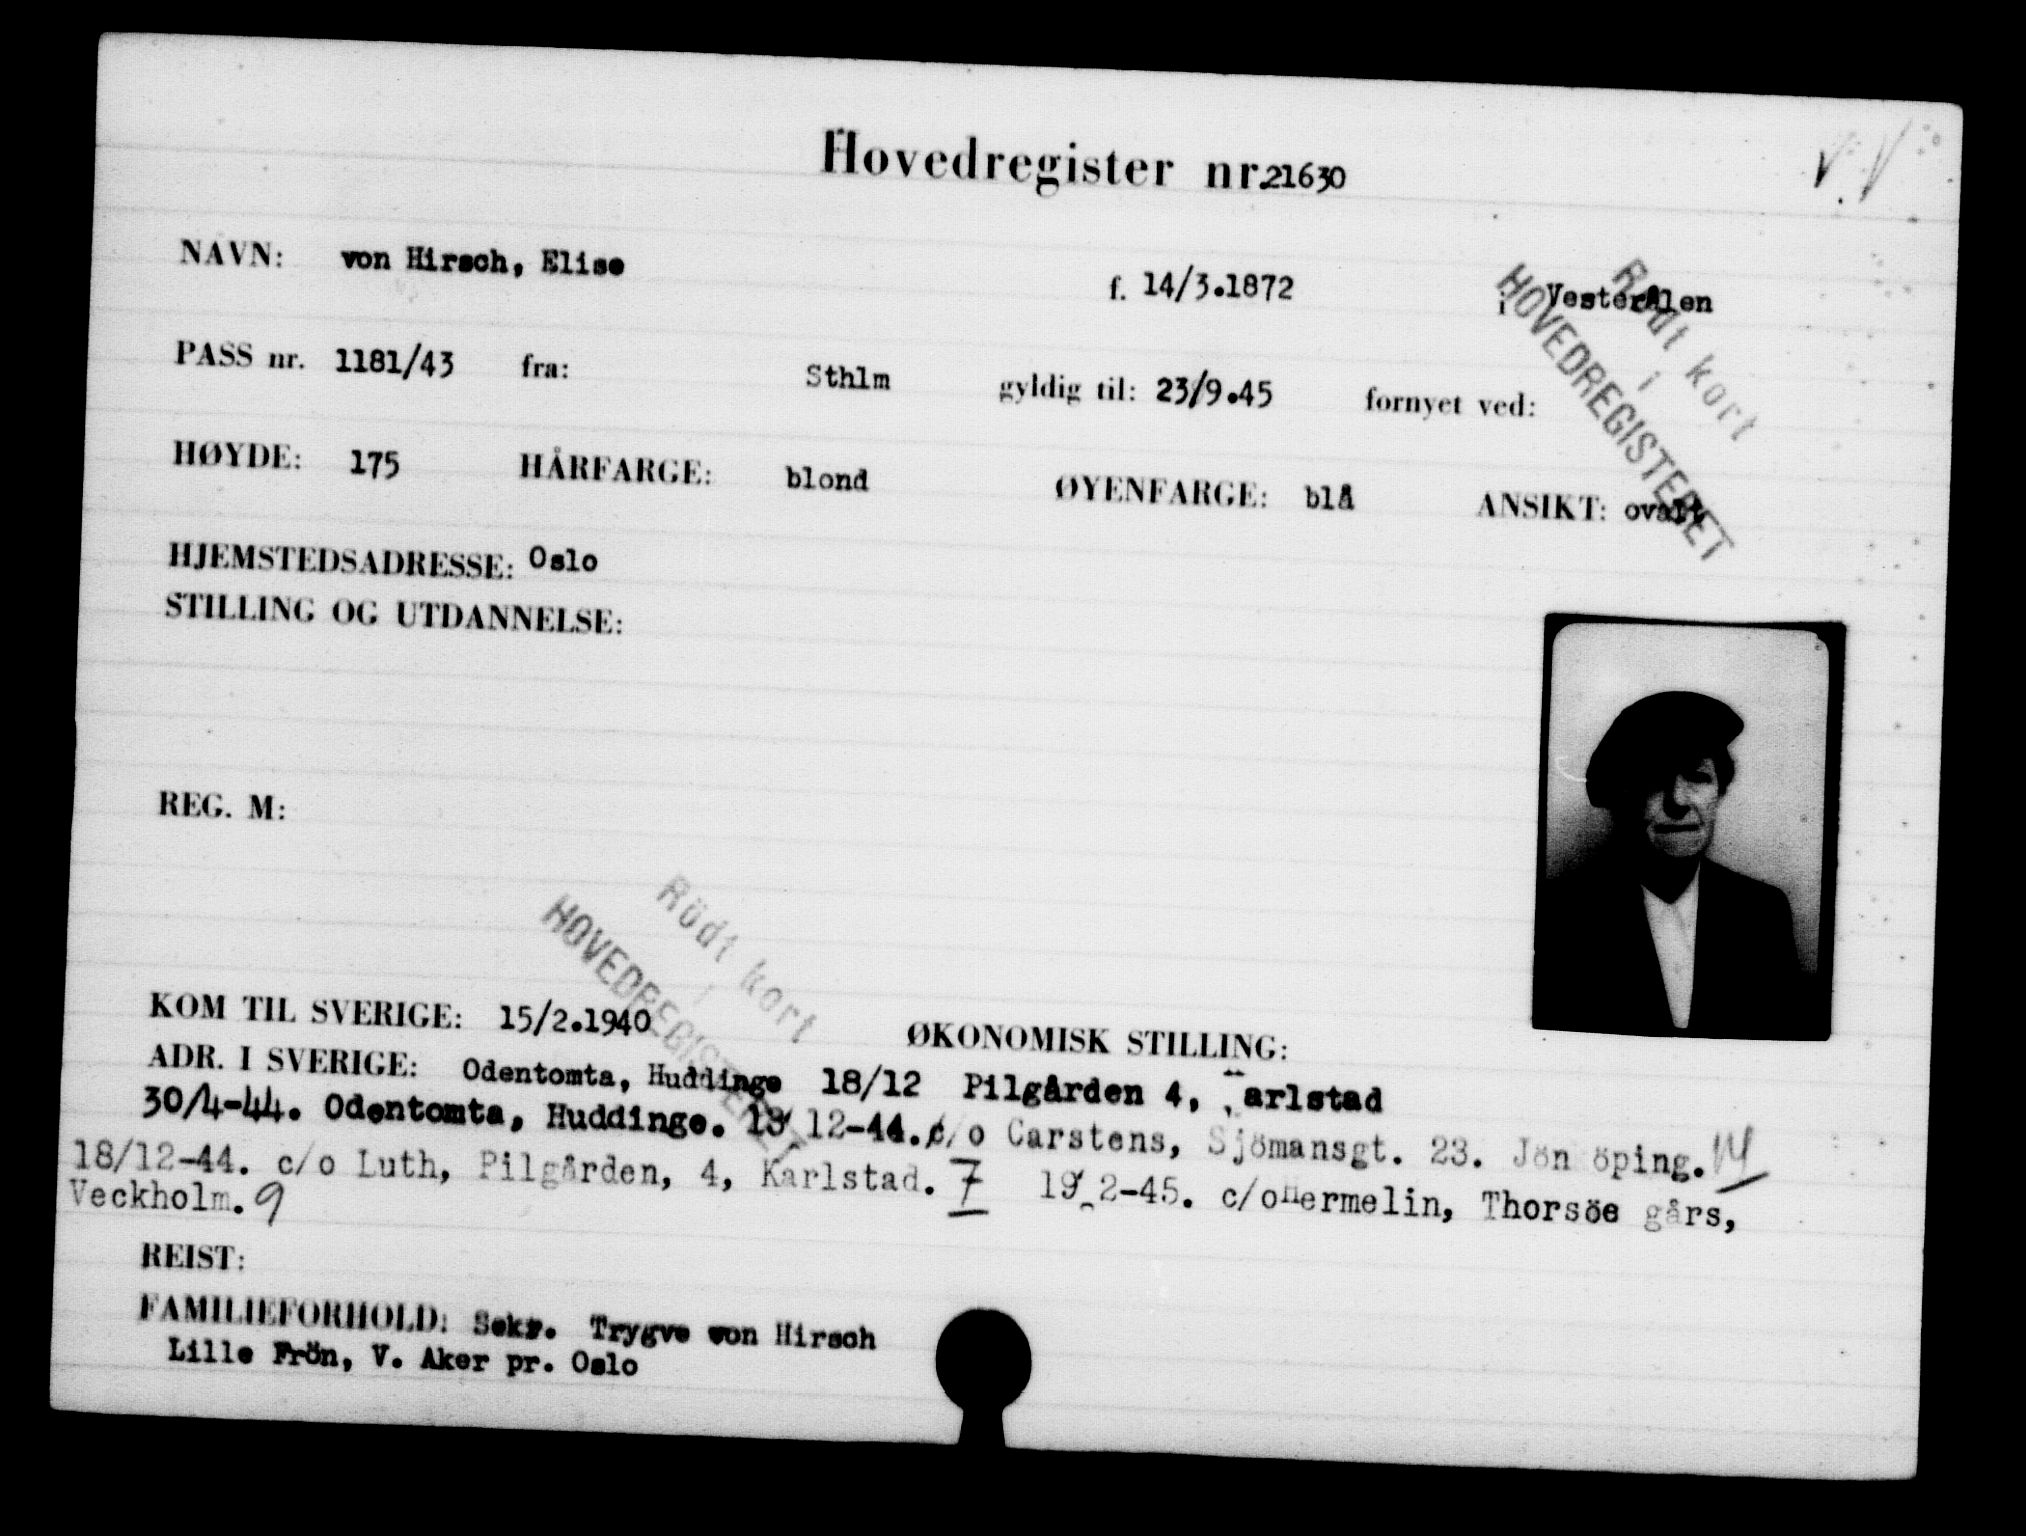 Hovedregister nr. 21630
NAVN: von Hirsch, Elise f. 14/3.1872 i Vesterålen
Rödt kort
i
HOVEDREGISTERET
PASS nr. 1181/43 fra: Sthlm gyldig til: 23/9.45 fornyet ved:
HØYDE: 175 HÅRFARGE: blond ØYENFARGE: blå ANSIKT: ovalt
HJEMSTEDSADRESSE: Oslo
STILLING OG UTDANNELSE:
REG. M:
Rödt kort
i
HOVEDREGISTERET
KOM TIL SVERIGE: 15/2.1940 ØKONOMISK STILLING:
ADR. I SVERIGE: Odentomta, Huddinge 18/12 Pilgården 4, Karlstad
30/4-44. Odentomta, Huddinge. 12-44. c/o Carstens, Sjömansgt. 23. Jön öping.
18/12-44. c/o Luth, Pilgården, 4, Karlstad. 7 19/2-45. c/o Hermelin, Thorsöe gårs,
Veckholm. 9
REIST:
FAMILIEFORHOLD: Sekr. Trygve von Hirsch
Lille Frön, V. Aker pr. Oslo